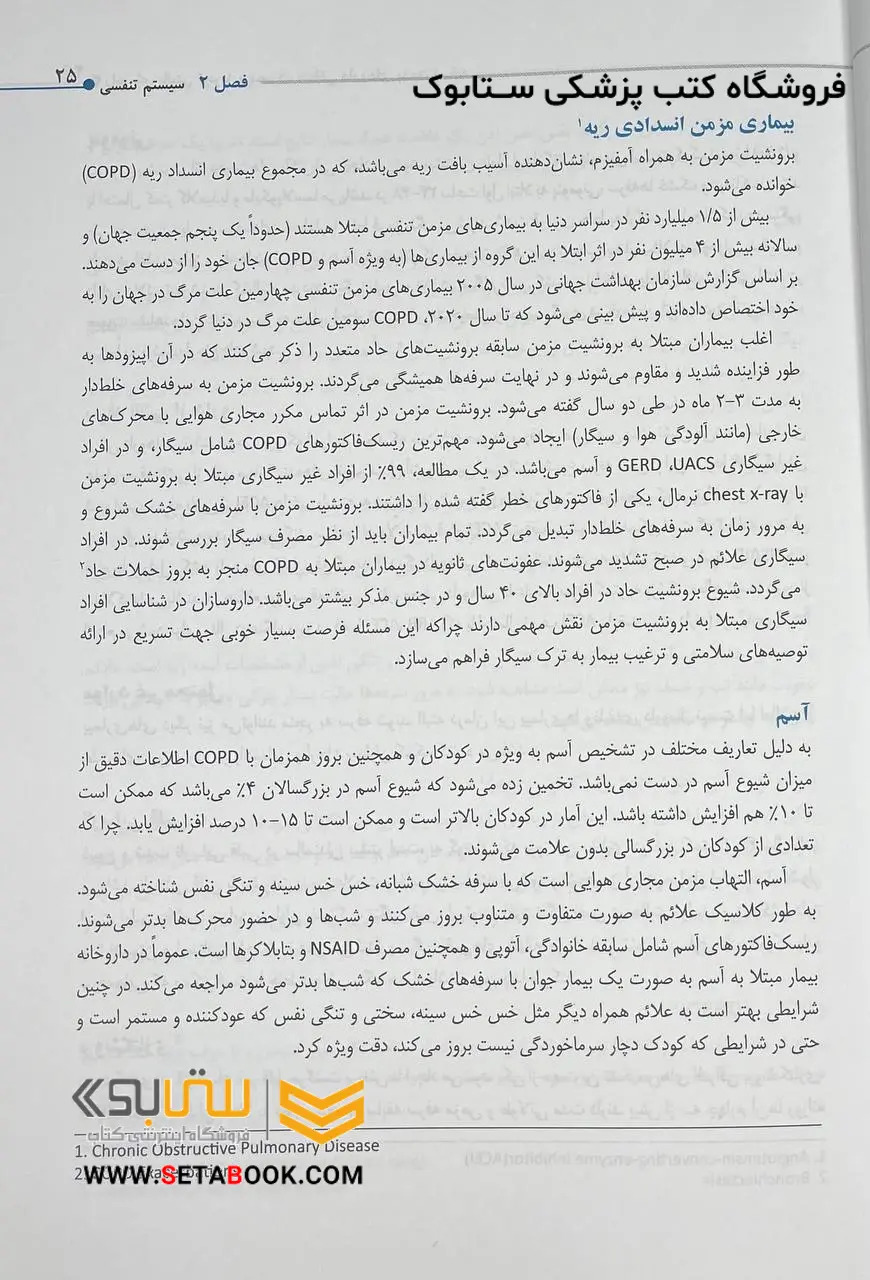 فروشگاه کتب پزشکی ستابوک
فصل ۲ سیستم تنفسی ۲۵
بیماری مزمن انسدادی ریه۱
برونشیت مزمن به همراه آمفیزم، نشان‌دهنده آسیب بافت ریه می‌باشد، که در مجموع بیماری انسداد ریه (COPD)
خوانده می‌شود.
بیش از ۱/۵ میلیارد نفر در سراسر دنیا به بیماری‌های مزمن تنفسی مبتلا هستند (حدوداً یک پنجم جمعیت جهان) و
سالانه بیش از ۴ میلیون نفر در اثر ابتلا به این گروه از بیماری‌ها (به ویژه آسم و COPD) جان خود را از دست می‌دهند.
بر اساس گزارش سازمان بهداشت جهانی در سال ۲۰۰۵ بیماری‌های مزمن تنفسی چهارمین علت مرگ در جهان را به
خود اختصاص داده‌اند و پیش بینی می‌شود که تا سال ۲۰۲۰، COPD سومین علت مرگ در دنیا گردد.
اغلب بیماران مبتلا به برونشیت مزمن سابقه برونشیت‌های حاد متعدد را ذکر می‌کنند که در آن اپیزودها به
طور فزاینده شدید و مقاوم می‌شوند و در نهایت سرفه‌ها همیشگی می‌گردند. برونشیت مزمن به سرفه‌های خلط‌دار
به مدت ۳-۲ ماه در طی دو سال گفته می‌شود. برونشیت مزمن در اثر تماس مکرر مجاری هوایی با محرک‌های
خارجی (مانند آلودگی هوا و سیگار) ایجاد می‌شود. مهم‌ترین ریسک‌فاکتورهای COPD شامل سیگار، و در افراد
غیر سیگاری GERD ،UACS و آسم می‌باشد. در یک مطالعه، ۹۹٪ از افراد غیر سیگاری مبتلا به برونشیت مزمن
با chest x-ray نرمال، یکی از فاکتورهای خطر گفته شده را داشتند. برونشیت مزمن با سرفه‌های خشک شروع و
به مرور زمان به سرفه‌های خلط‌دار تبدیل می‌گردد. تمام بیماران باید از نظر مصرف سیگار بررسی شوند. در افراد
سیگاری علائم در صبح تشدید می‌شوند. عفونت‌های ثانویه در بیماران مبتلا به COPD منجر به بروز حملات حاد۲
می‌گردد. شیوع برونشیت حاد در افراد بالای ۴۰ سال و در جنس مذکر بیشتر می‌باشد. داروسازان در شناسایی افراد
سیگاری مبتلا به برونشیت مزمن نقش مهمی دارند چراکه این مسئله فرصت بسیار خوبی جهت تسریع در ارائه
توصیه‌های سلامتی و ترغیب بیمار به ترک سیگار فراهم می‌سازد.
آسم
به دلیل تعاریف مختلف در تشخیص آسم به ویژه در کودکان و همچنین بروز همزمان با COPD اطلاعات دقیق از
میزان شیوع آسم در دست نمی‌باشد. تخمین زده می‌شود که شیوع آسم در بزرگسالان ۴٪ می‌باشد که ممکن است
تا ۱۰٪ هم افزایش داشته باشد. این آمار در کودکان بالاتر است و ممکن است تا ۱۵-۱۰ درصد افزایش یابد. چرا که
تعدادی از کودکان در بزرگسالی بدون علامت می‌شوند.
آسم، التهاب مزمن مجاری هوایی است که با سرفه خشک شبانه، خس خس سینه و تنگی نفس شناخته می‌شود.
به طور کلاسیک علائم به صورت متفاوت و متناوب بروز می‌کنند و شب‌ها و در حضور محرک‌ها بدتر می‌شوند.
ریسک‌فاکتورهای آسم شامل سابقه خانوادگی، آتوپی و همچنین مصرف NSAID و بتابلاکرها است. عموماً در داروخانه
بیمار مبتلا به آسم به صورت یک بیمار جوان با سرفه‌های خشک که شب‌ها بدتر می‌شود مراجعه می‌کند. در چنین
شرایطی بهتر است به علائم همراه دیگر مثل خس خس سینه، سختی و تنگی نفس که عودکننده و مستمر است و
حتی در شرایطی که کودک دچار سرماخوردگی نیست بروز می‌کند، دقت ویژه کرد.
ستابوک
فروشگاه اینترنتی کتاب
1. Chronic Obstructive Pulmonary Disease
2.
WWW.SETABOOK.COM